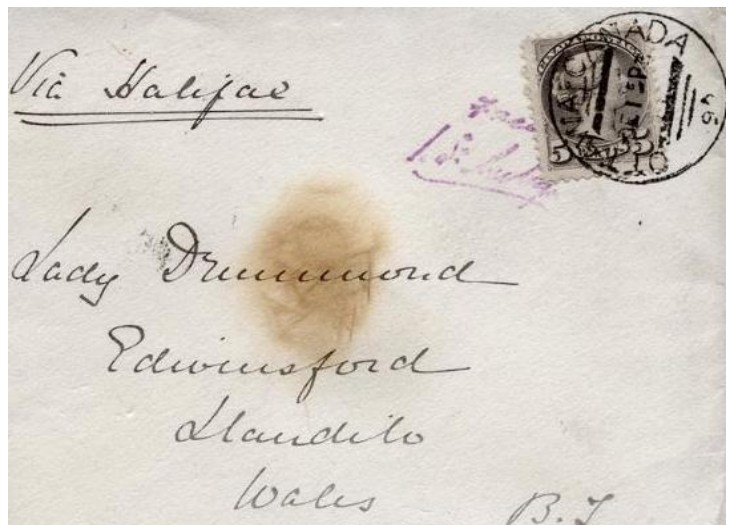 Via Halifax
CANADA
OTTAWA
5 5
Lady Drummond
Edwinsford
Llandilo
Wales
B.I